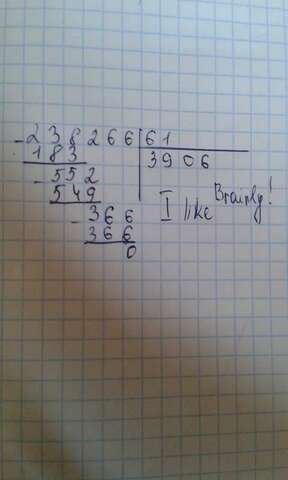 -238266 61
183 3906
-552
549
-366
366
0
I like Brainly!